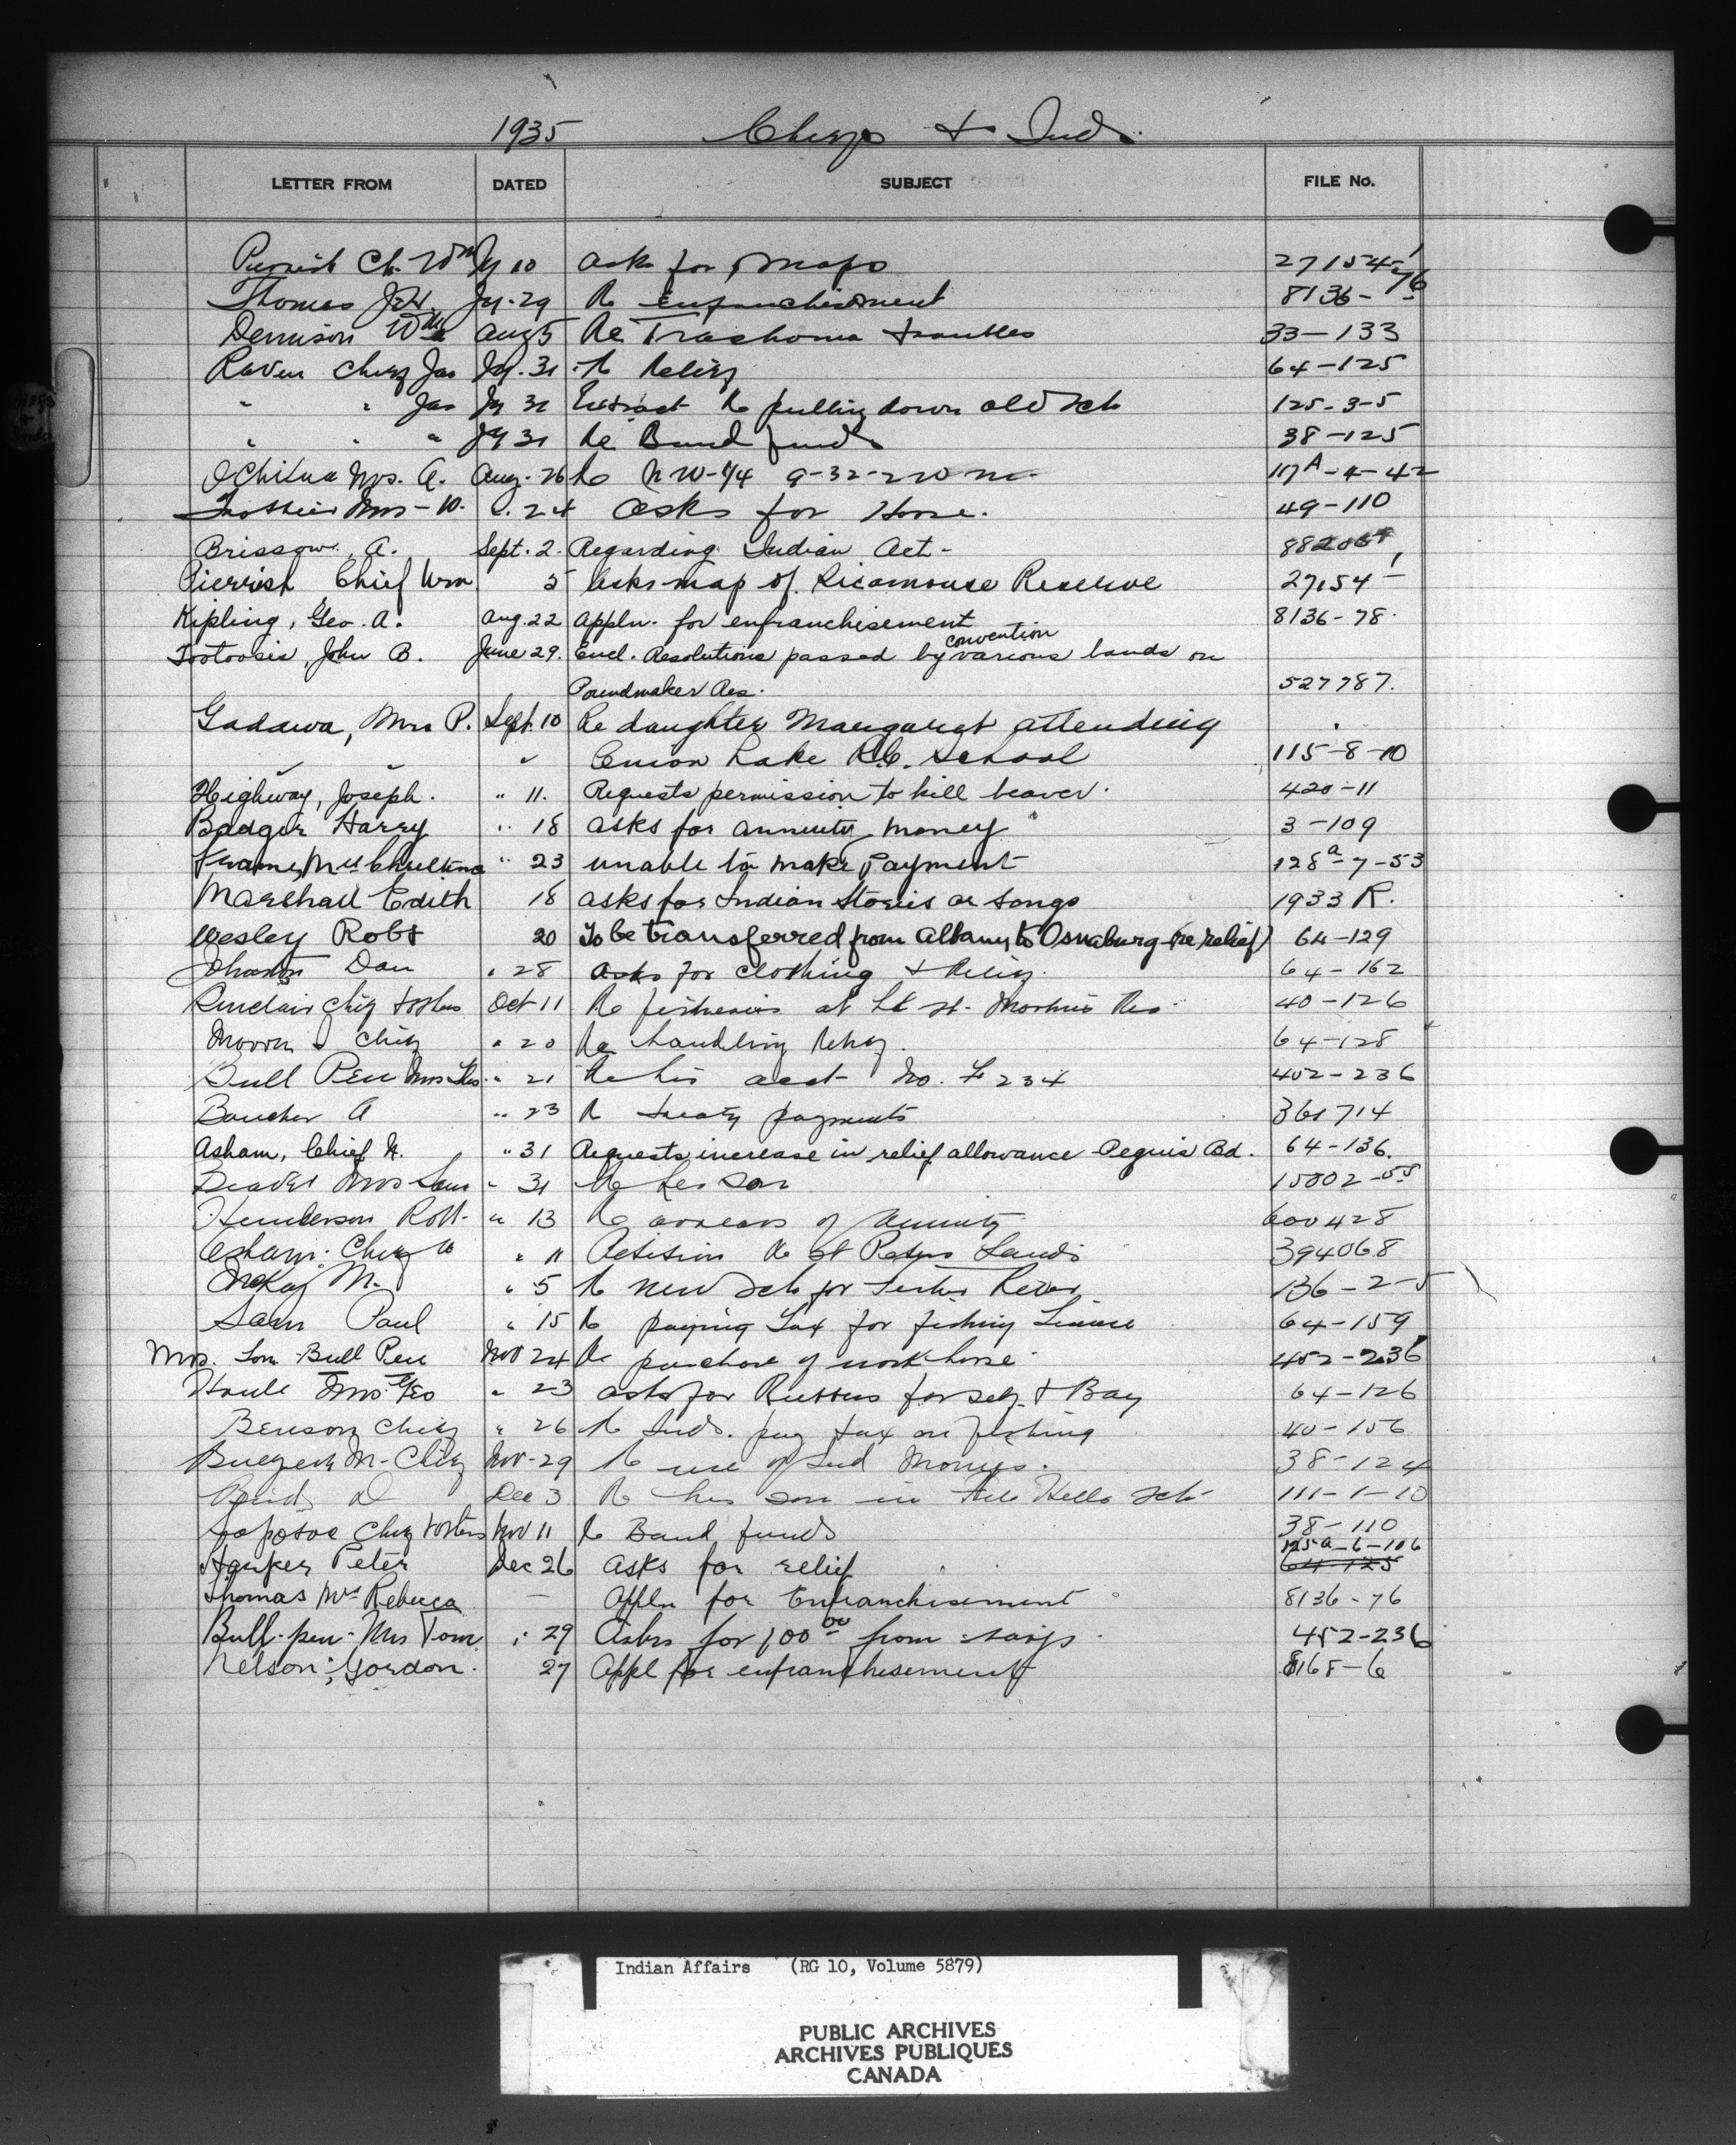 1935 Chiefs & Inds.
LETTER FROM DATED SUBJECT FILE No.
Pierrish Ch. Wm Jy 10 Asks for maps 27154-1
Thomas Jy-29 Re Enfranchisement 8136-76
Dennison Wm Aug 5 Re Trachoma troubles 33-133
Raven Chief Jas Jy. 31 Re Relief 64-125
" " Jas Jy 31 Extract Re pulling down old sch 125-3-5
" " " Jy 31 Re Band funds 38-125
Ochikua Mrs. A. Aug-26 Re NW-1/4 9-32-2 W M. 117A-4-42
Mrs - W. " 24 Asks for Horse. 49-110
Brissow, A. Sept. 2. Regarding Indian Act-
Pierrish Chief Wm 5 Asks map of Reserve 27154-1
Kipling, Geo. A. Aug. 22 Appln. for enfranchisement 8136-78.
Tootoosis, John B. June 29. Encl. Resolutions passed by convention various bands on
Poundmaker Res. 527787.
Gadawa, Mrs P. Sept. 10 Re daughter Margaret attending
" " " Onion Lake R.C. School 115-8-10
Highway, Joseph. " 11. Requests permission to kill beaver. 420-11
Badger Harry " 18 asks for annuity money 3-109
" 23 unable to make Payment 128a-7-53
Marshall Edith 18 asks for Indian Stories or Songs 1933 R.
Wesley Robt 20 To be transferred from Albany to Osnaburg (re relief) 64-129
Johnston Dan " 28 Asks for clothing & Relief. 64-162
Sinclair Chief & others Oct 11 Re fisheries at Lk St. Martins Res 40-126
Moore J Chief " 20 Re handling Relief. 64-128
Bull Pen Mrs Thos. " 21 Re his acct No. 234 402-236
Boucher A " 23 Re Treaty payments 361714
Asham, Chief W. " 31 Requests increase in relief allowance - Peguis Bd. 64-136.
Beaver Mrs Sam " 31 Re her son 15002-55
Henderson Robt- " 13 Re arrears of annuity 600428
Asham. Chief W " 11 Petition Re St Peters Lands 394068
McKay M. " 5 Re new Sch for Fisher River 136-2-5
Sam Paul " 15 Re paying Tax for fishing License 64-159
Mrs. Tom Bull Pen Nov 24 Re purchase of work horse 452-236
Houle Mrs. Geo " 23 asks for Rubbers for self & Boy 64-126
Benson Chief " 26 Re Inds. pay tax on fishing 40-156
M- Chief Nov-29 Re use of Ind Moneys. 38-124
D Dec 3 Re his son in File Hills Sch 111-1-10
Chief & others Nov 11 Re Band funds 38-110
125a-6-106
Harper Peter Dec 26 asks for relief 64-125
Thomas Mrs Rebecca — Appln for Enfranchisement 8136-76
Bull-pen-Mrs Tom " 29 Asks for 100 00 from savgs. 452-236
Nelson, Gordon. 27 Appl for enfranchisement 8168-6
Indian Affairs (RG 10, Volume 5879)
PUBLIC ARCHIVES
ARCHIVES PUBLIQUES
CANADA